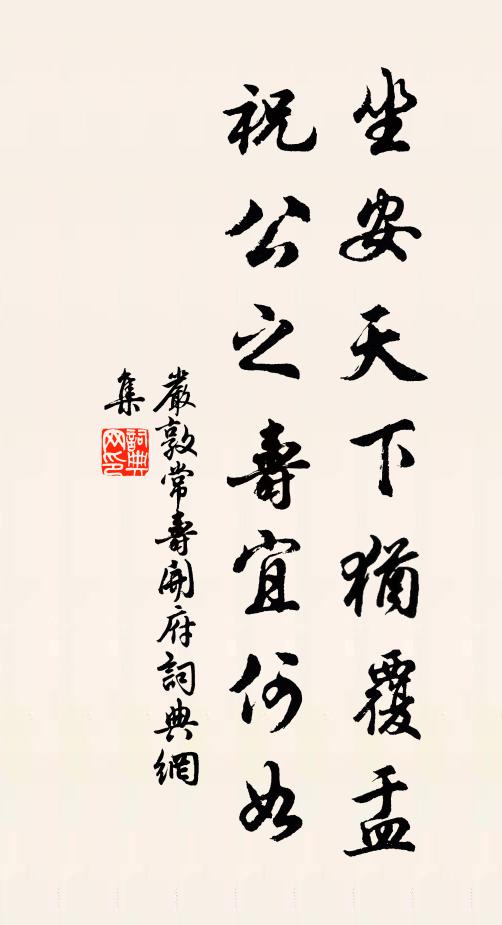 坐安天下猶覆盂
祝公之壽宜何如
嚴敦常壽開府詞典網
集
詞典網印